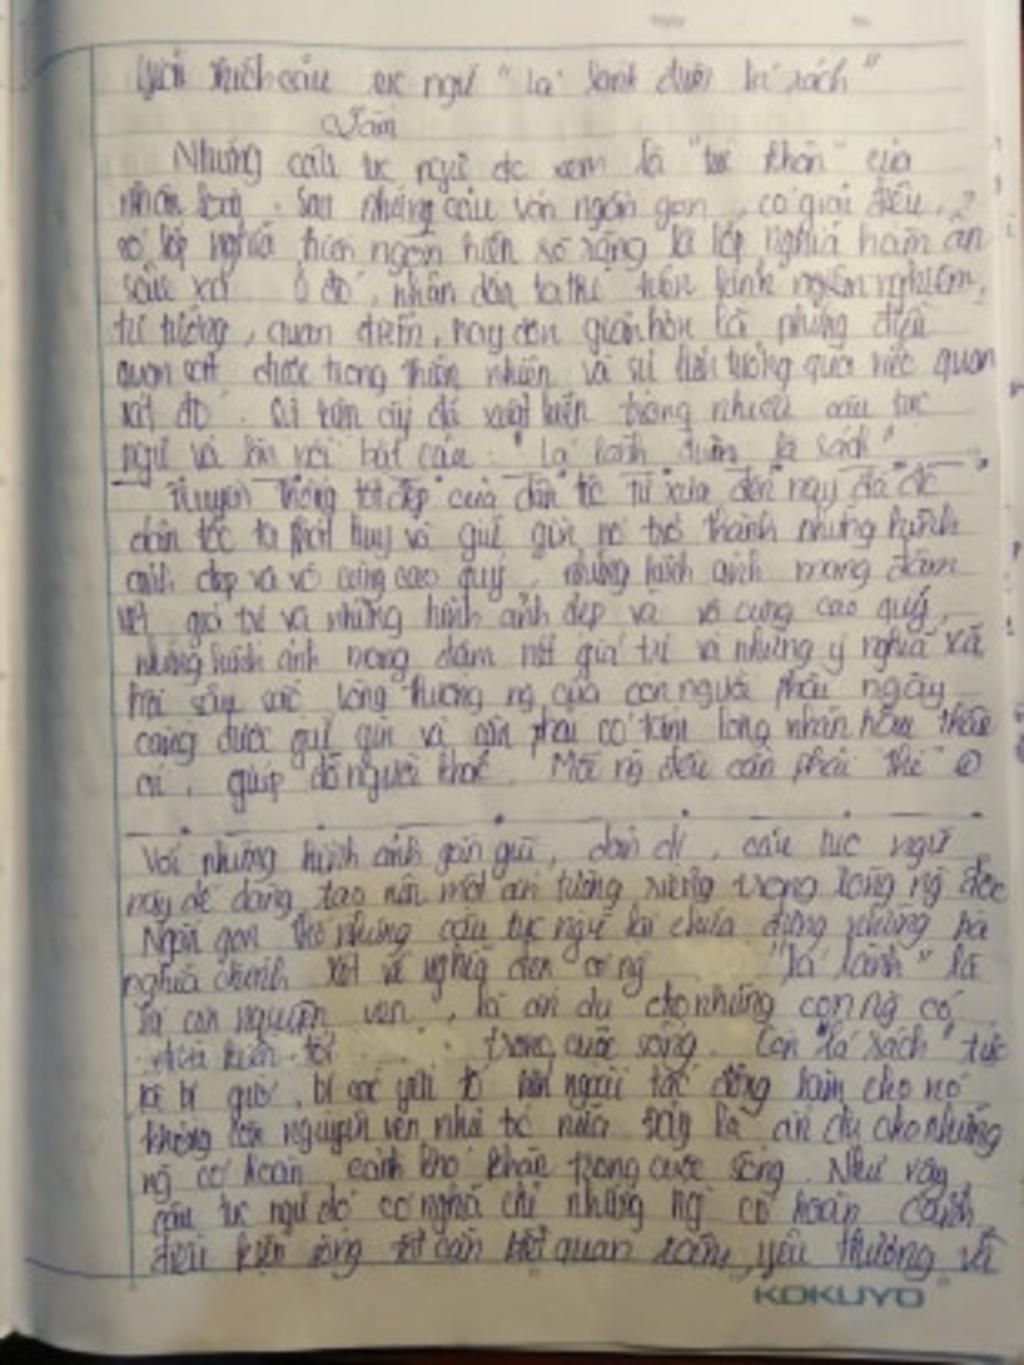 Giải thích câu tục ngữ "lá lành đùm lá rách"
Nhưng câu tục ngữ đc xem là "túi khôn" của
nhân loại. Sau những câu văn ngắn gọn, có giai điệu, 2
có lớp nghĩa hiển ngôn hiển rõ ràng là lớp nghĩa hàm ẩn
sâu xa Ở đó, nhân dân ta kinh nghiệm,
tư tưởng, quan điểm, hay đơn giản hơn là những điều
quan sát được trong thiên nhiên và sự liên tưởng qua việc quan
sát đó. đã xuất hiện trong nhiều câu tục
ngữ và bắt câu "lá lành đùm lá rách"
Truyền thống tốt đẹp của dân tộc từ xưa đến nay đã đc
dân tộc ta phát huy và giữ gìn nó trở thành những hình
ảnh đẹp và vô cùng cao quý, những hình ảnh mang đậm
nét giá trị và những hình ảnh đẹp và vô cùng cao quý,
những hình ảnh mang đậm nét giá trị và những ý nghĩa xã
hội sâu sắc lòng thương ng của con người phải ngày
càng được giữ gìn và cần phải có tấm lòng nhân hậu
giúp đỡ người khác. Mỗi ng đều cần phải thế
Với những hình ảnh gần gũi, dản dị, câu tục ngữ
này dễ dàng tạo nên một ấn tượng riêng trong lòng ng đọc
Ngắn gọn thế nhưng câu tục ngữ lại chứa đựng những
nghĩa chính Xét về nghĩa đen "lá lành" là
lá còn nguyên vẹn, là ẩn dụ cho những con ng có
điều kiện tốt trong cuộc sống. Còn "lá rách" tức
là bị gió, bị các yếu tố bên ngoài tác động làm cho nó
không còn nguyên vẹn như nữa là ẩn dụ cho những
ng có hoàn cảnh khó khăn trong cuộc sống. Như vậy,
câu tục ngữ đó có nghĩa chỉ những ng có hoàn cảnh
điều kiện sống tốt cần biết quan tâm, yêu thương và
KOKUYO